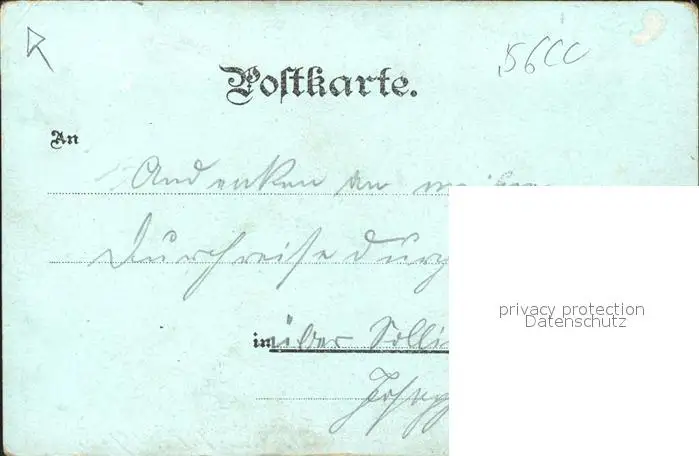 56CC
Postkarte.
An
Andenken an meine
Durchreise durch
im
über Solli
privacy protection
Datenschutz